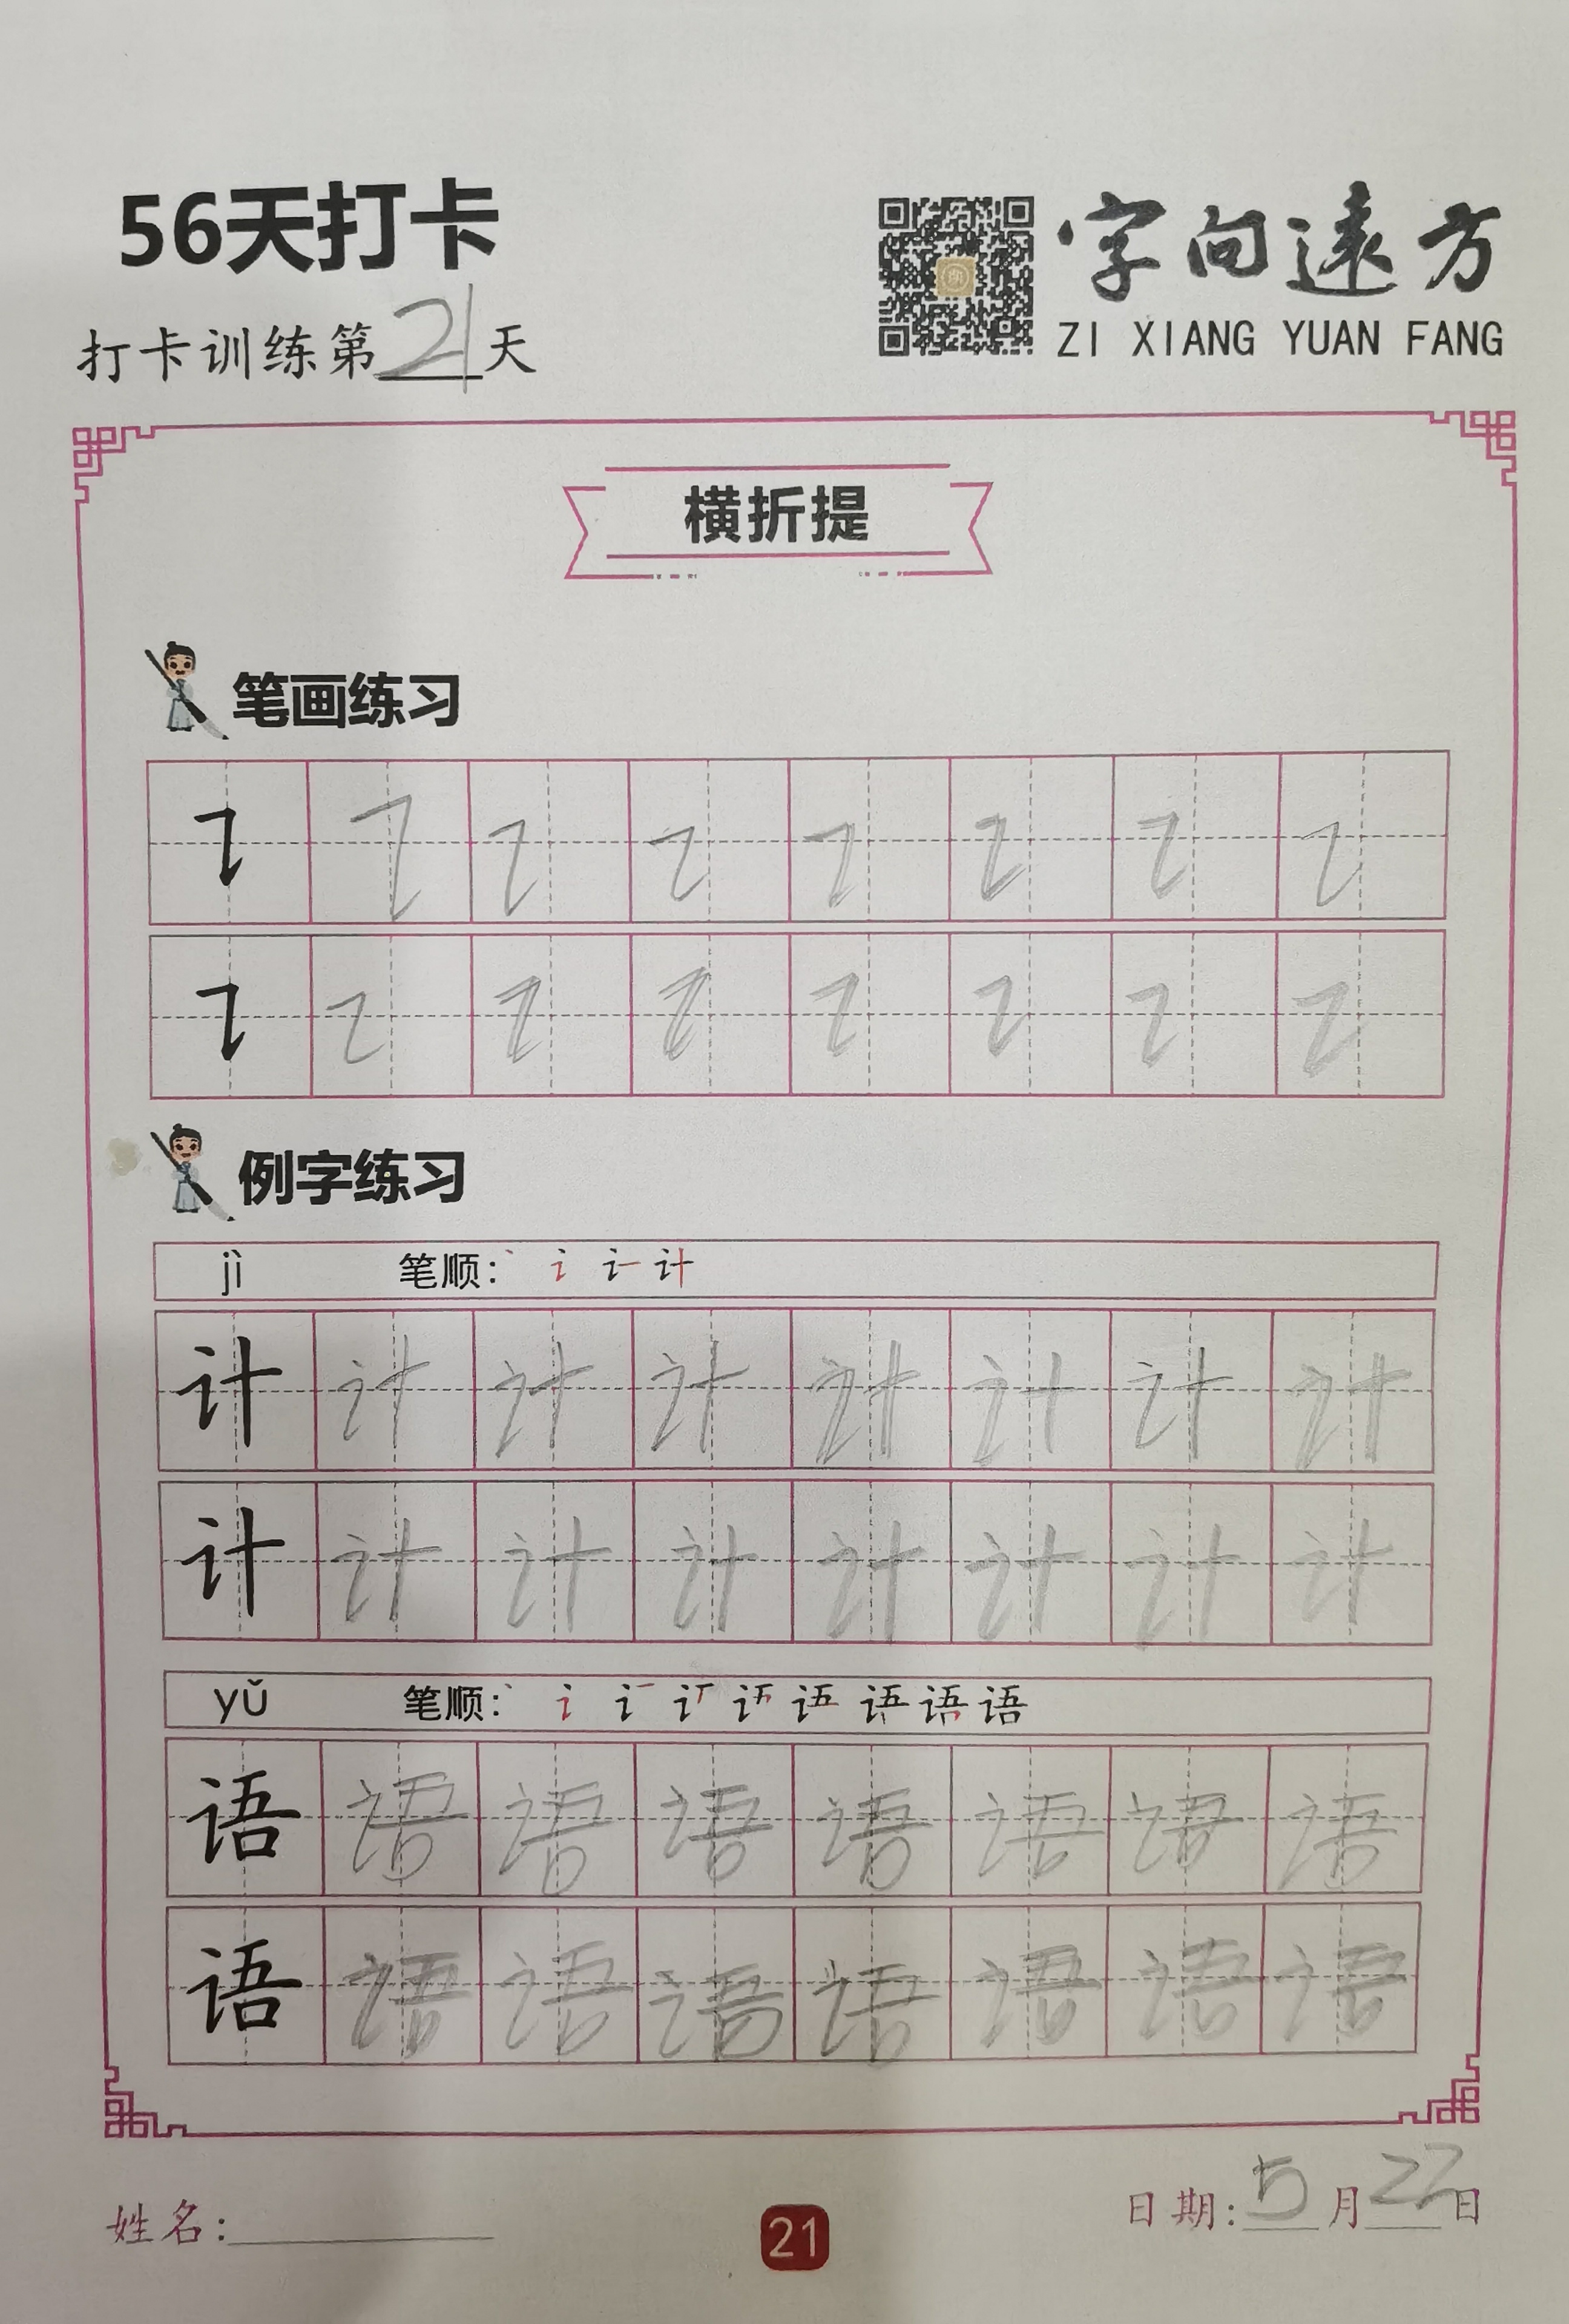 56天打卡
字向遠方
ZI XIANG YUAN FANG
打卡训练第21天
横折提
笔画练习
例字练习
jì 笔顺: 计
计 计 计 计 计 计 计 计
计 计 计 计 计 计 计 计
yǔ 笔顺: 语
语 语 语 语 语 语 语 语
语 语 语 语 语 语 语 语
姓名:
21
日期:5月22日